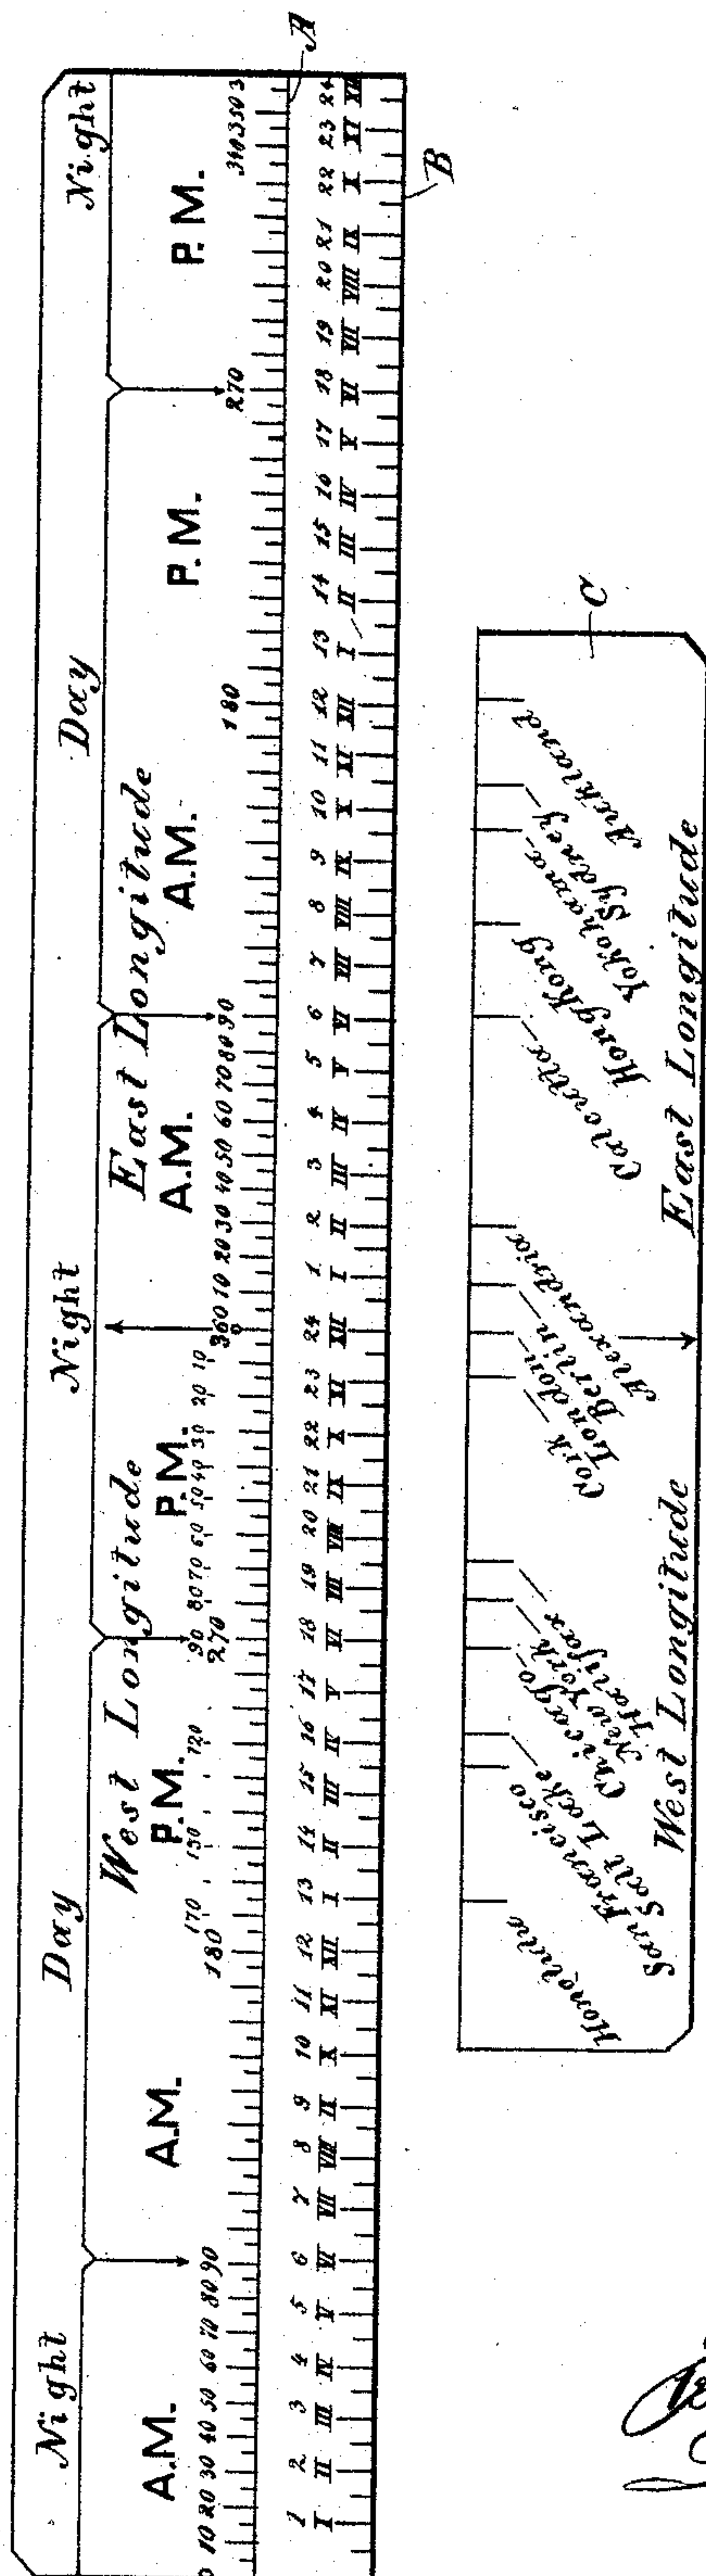 Night Day Night Day Night
West Longitude East Longitude
A.M. A.M. P.M. P.M. A.M. A.M. P.M. P.M.
170 150 120 90 80 70 60 50 40 30 20 10
10 20 30 40 50 60 70 80 90 180 270 360 10 20 30 40 50 60 70 80 90 180 270 340 350 3
0
A
1 2 3 4 5 6 7 8 9 10 11 12 13 14 15 16 17 18 19 20 21 22 23 24 1 2 3 4 5 6 7 8 9 10 11 12 13 14 15 16 17 18 19 20 21 22 23 24
I II III IV V VI VII VIII IX X XI XII I II III IV V VI III VIII IX X XI XII I II III IV V VI VII VIII IX X XI XII I II III IV V VI VII VIII IX X XI XII
B
Honolulu
San Francisco
Salt Locke
Chicago
New York
Halifax
Cork
London
Berlin
Alexandria
Calcutta
Hong Kong
Yokohama
Sydney
Aukland
C
West Longitude East Longitude